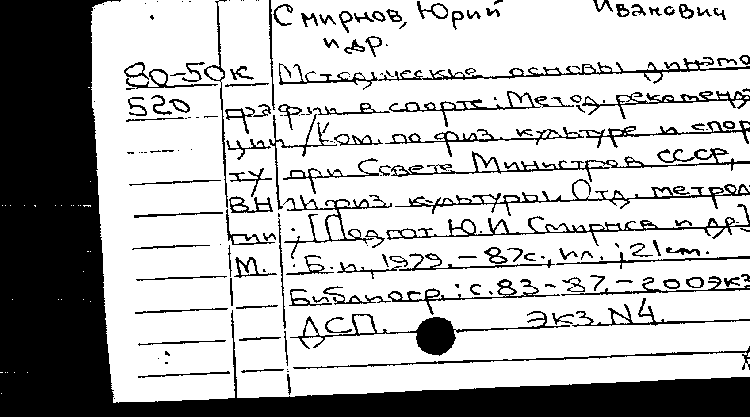 Смирнов, Юрий Иванович
и др.
80-50к Методические основы динамо
520 графии в спорте: Метод. рекоменда
ции / Ком. по физ. культуре и спор
ту при Совете Министров СССР,
ВНИИ физ. культуры. Отд. метроло
гии; [Подгот. Ю.И. Смирнов и др.]
М.: Б.и., 1979. - 87с., ил.; 21см.
Библиогр.: с.83-87. - 200экз
ДСП. экз. N4.